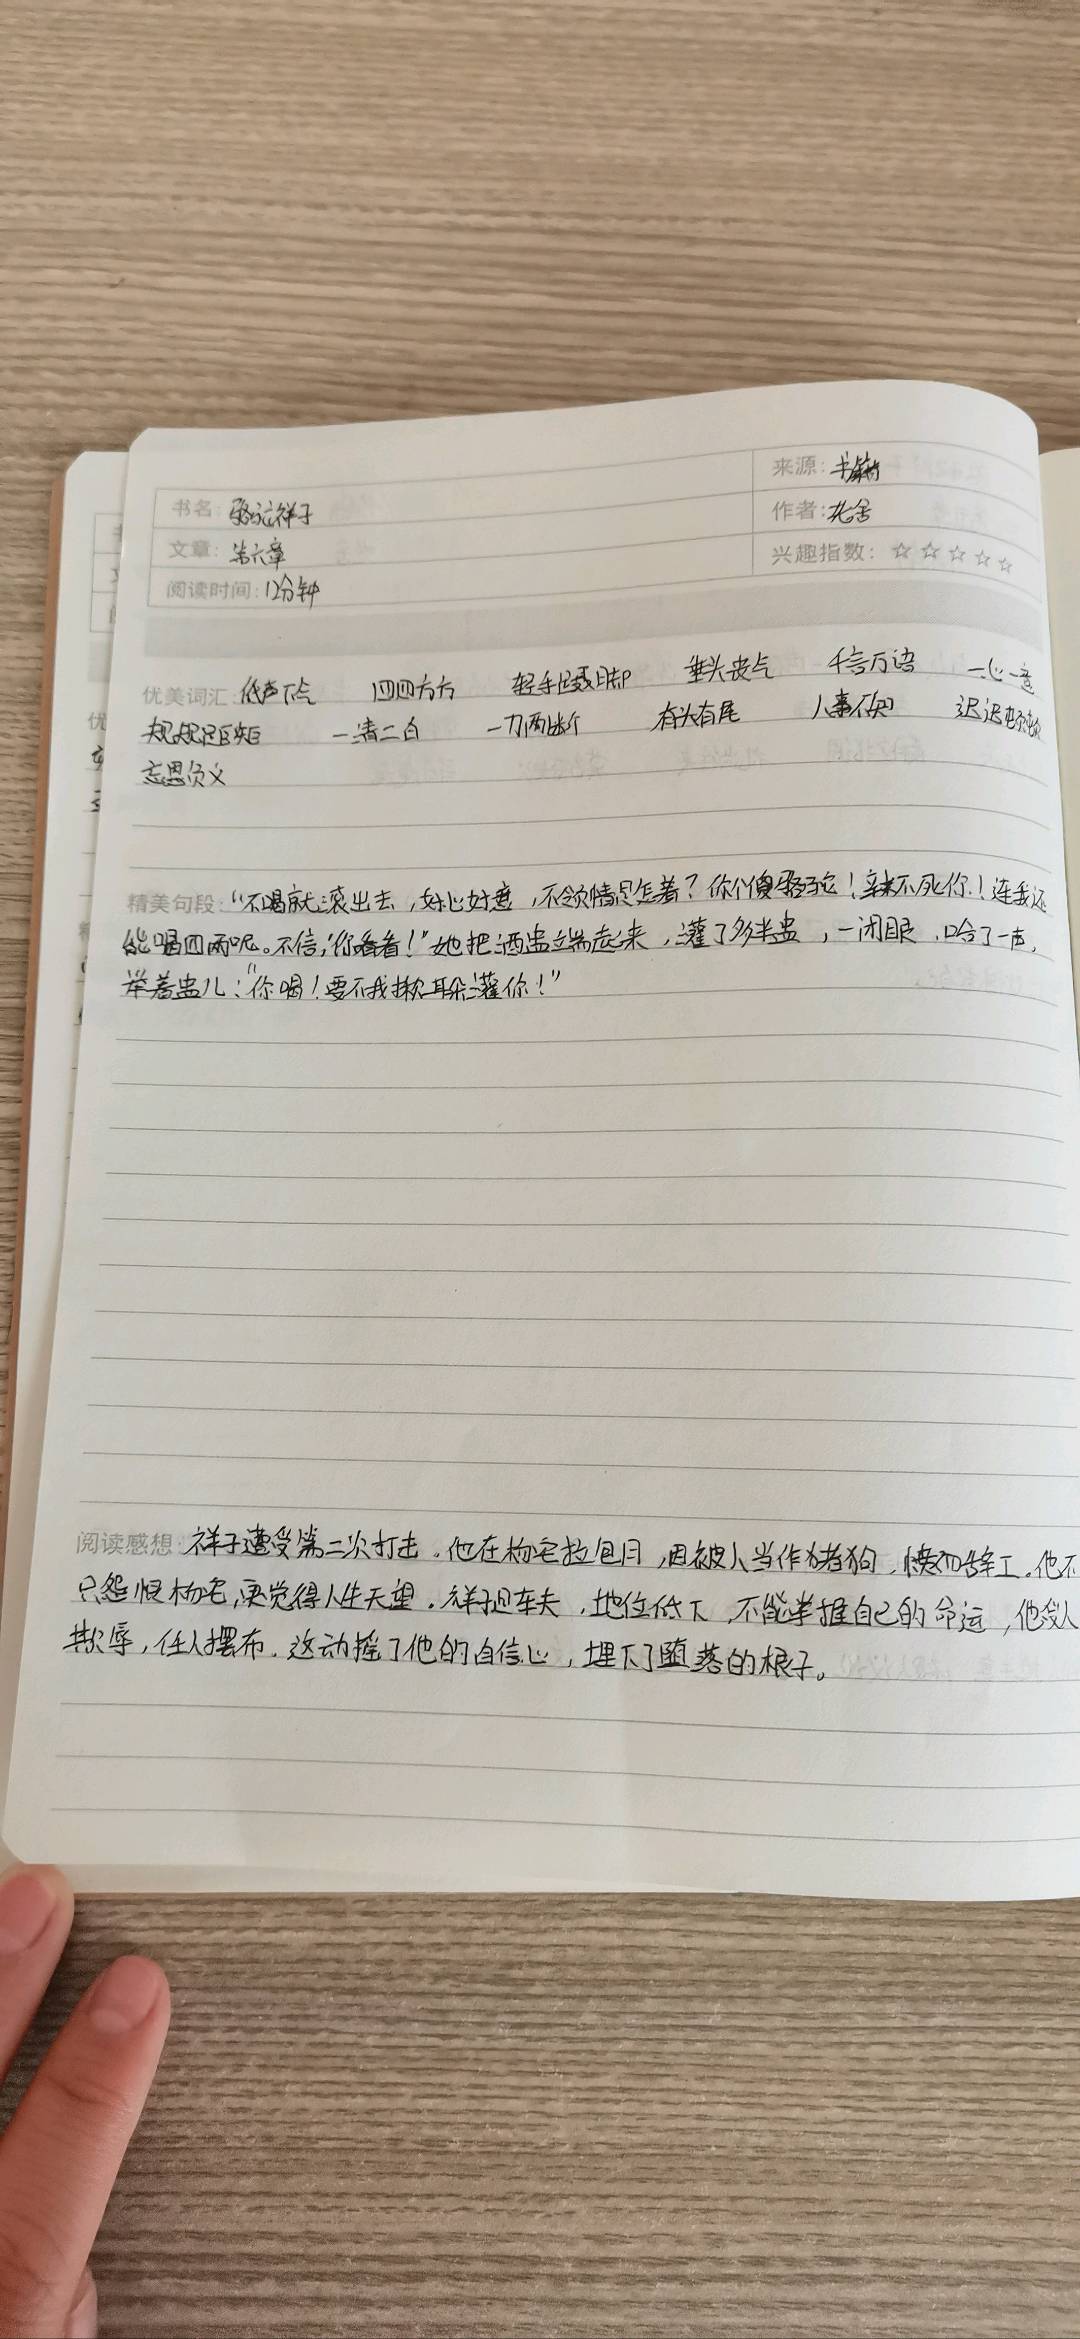 来源：书籍
书名：骆驼祥子
作者：老舍
文章：第六章
兴趣指数：☆☆☆☆☆
阅读时间：12分钟
优美词汇：低声下气 四四方方 轻手蹑脚 垂头丧气 千言万语 一心一意
规规矩矩 一清二白 一刀两断 有头有尾 人事不知 迟迟顿顿
忘恩负义
精美句段："不喝就滚出去，好心好意，不领情是怎着？你个傻骆驼！辣不死你！连我还
能喝四两呢。不信，你看看！"她把酒盅端起来，灌了多半盅，一闭眼，哈了一声，
举着盅儿："你喝！要不我揪耳朵灌你！"
阅读感想：祥子遭受第二次打击。他在杨宅拉包月，因被人当作猪狗，愤而辞工。他不
只怨恨杨宅，更觉得人生无望。祥子是车夫，地位低下，不能掌握自己的命运，他受人
欺辱，任人摆布。这动摇了他的自信心，埋下了堕落的根子。